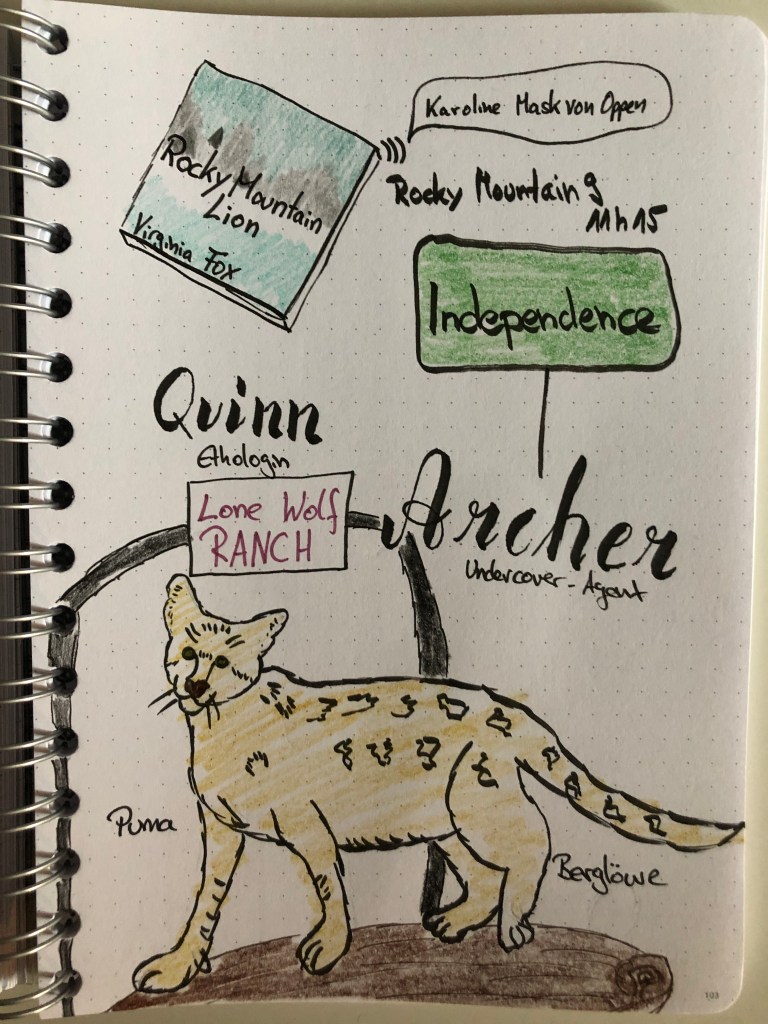 Karoline Mask von Oppen
Rocky Mountain
Lion
Virginia Fox
Rocky Mountain 9
11h15
Independence
Quinn
Ethologin
Lone Wolf
RANCH
Archer
Undercover-Agent
Puma
Berglöwe
103